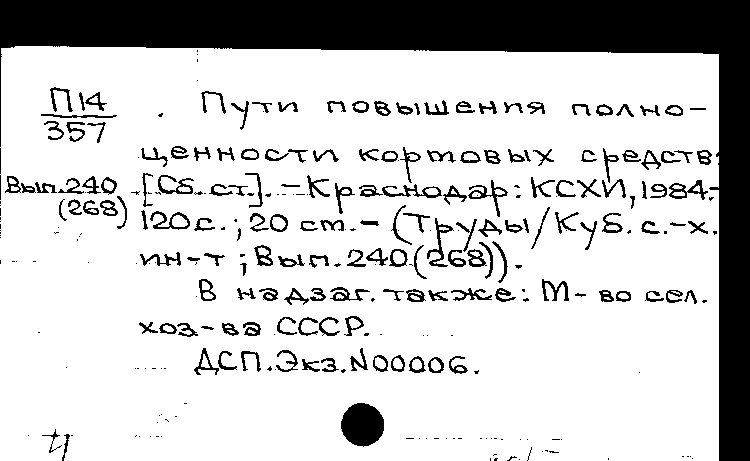 П14
357
Пути повышения полно-
ценности кортовых средств
Вып.240 [Сб.ст.]. - Краснодар: КСХИ, 1984.-
(268) 120с.; 20 см. - (Труды/Куб. с.-х.
ин-т; Вып.240(268)).
В надзаг. также: М-во сел.
хоз-ва СССР.
ДСП. Экз.N00006.